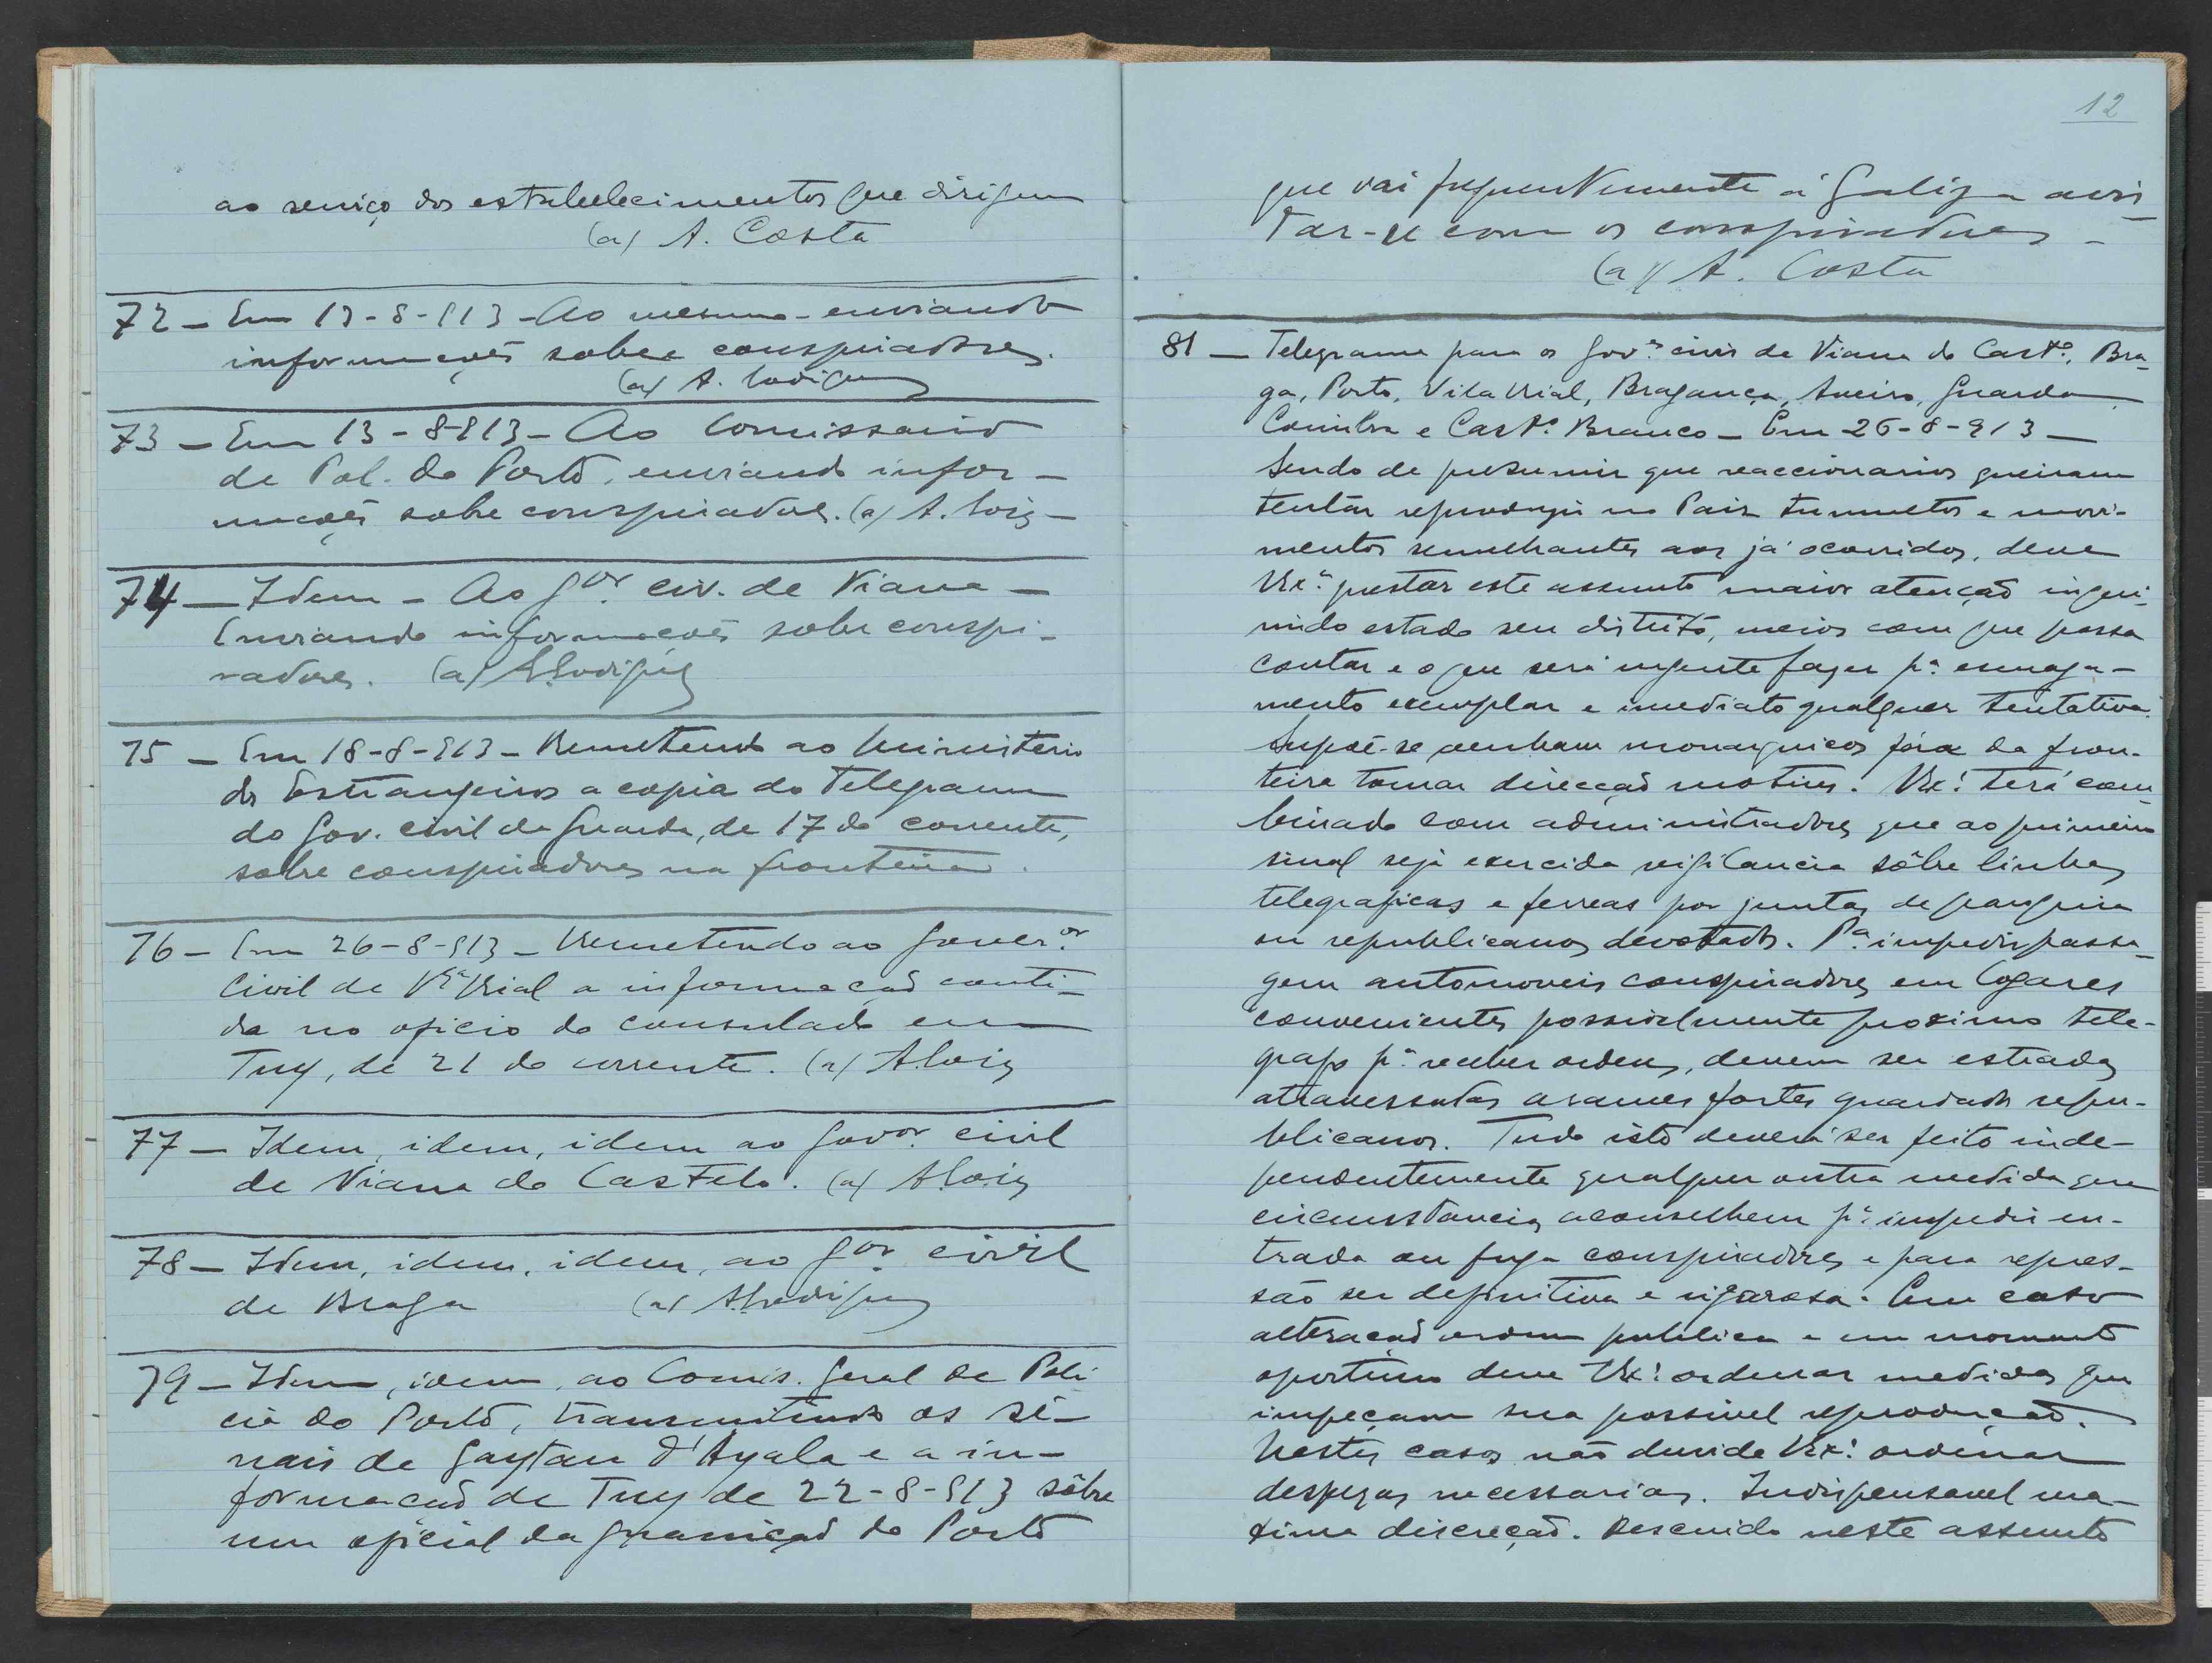 ao serviço dos estabelecimentos que dirigem
(a) A. Costa
72 - Em 13-8-913 - Ao mesmo - enviando
informações sobre conspiradores.
(a) A. Rodrigues
73 - Em 13-8-913 - Ao Comissario
de Pol. do Porto, enviando infor-
mações sobre conspiradores. (a) A. Roiz -
74 - Idem - Ao Gor. civ. de Viana -
Enviando informações sobre conspi-
radores. (a) A. Rodrigues
75 - Em 18-8-913 - Remetendo ao Ministerio
dos Estrangeiros a copia do telegrama
do Gov. civil da Guarda, de 17 do corrente,
sobre conspiradores na fronteira.
76 - Em 26-8-913 - Remetendo ao Gover.or
Civil de Vª Rial a informação conti-
da no oficio do consulado em
Tuy, de 21 do corrente. (a) A. Roiz
77 - Idem, idem, idem ao Govor. civil
de Viana do Castelo. (a) A. Roiz
78 - Idem, idem, idem, ao Gor. civil
de Braga (a) A. Rodrigues
79 - Idem, idem, ao Comis. Geral de Poli
cia do Porto, transmitindo os si-
nais de Gaytan d'Ayala e a in-
formação de Tuy de 22-8-913 sôbre
um oficial da guarnição do Porto
12
que vai frequentemente á Galiza avis
tar-se com os conspiradores -
(a) A. Costa
81 - Telegrama para os Gov.es civis de Viana do Cast.º, Bra-
ga, Porto, Vila Rial, Bragança, Aveiro, Guarda
Coimbra e Cast.º Branco - Em 26-8-913 -
Sendo de presumir que reaccionarios queiram
tentar reproduzir no Paiz tumultos e movi-
mentos semelhantes aos já ocorridos, deve
VExª prestar este assunto maior atenção inqui-
rindo estado seu distrito, meios com que possa
contar e o que será urgente fazer pª esmaga-
mento exemplar e imediato qualquer tentativa.
Supõe-se venham monarquicos fóra da fron-
teira tomar direcção motins. VExª terá com
binado com administradores que ao primeiro
sinal seja exercida vigilancia sôbre linhas
telegraficas e ferreas por juntas de paroquia
ou republicanos devotados. Pª impedir passa-
gem automoveis conspiradores em logares
convenientes possivelmente proximo tele-
grafo pª receber ordens, devem ser estradas
atravessadas arames fortes guardados repu-
blicanos. Tudo isto deverá ser feito inde-
pendentemente qualquer outra medida que
circunstancias aconselhem pª impedir en-
trada ou fuga conspiradores e para repres-
são ser definitiva e rigorosa. Em caso
alteração ordem publica e em momento
oportuno deve VExª ordenar medidas que
impeçam sua possivel reprodução.
Nestes casos não duvide VExª ordenar
despezas necessarias. Indispensavel ma-
xima discreção. Descuido neste assunto